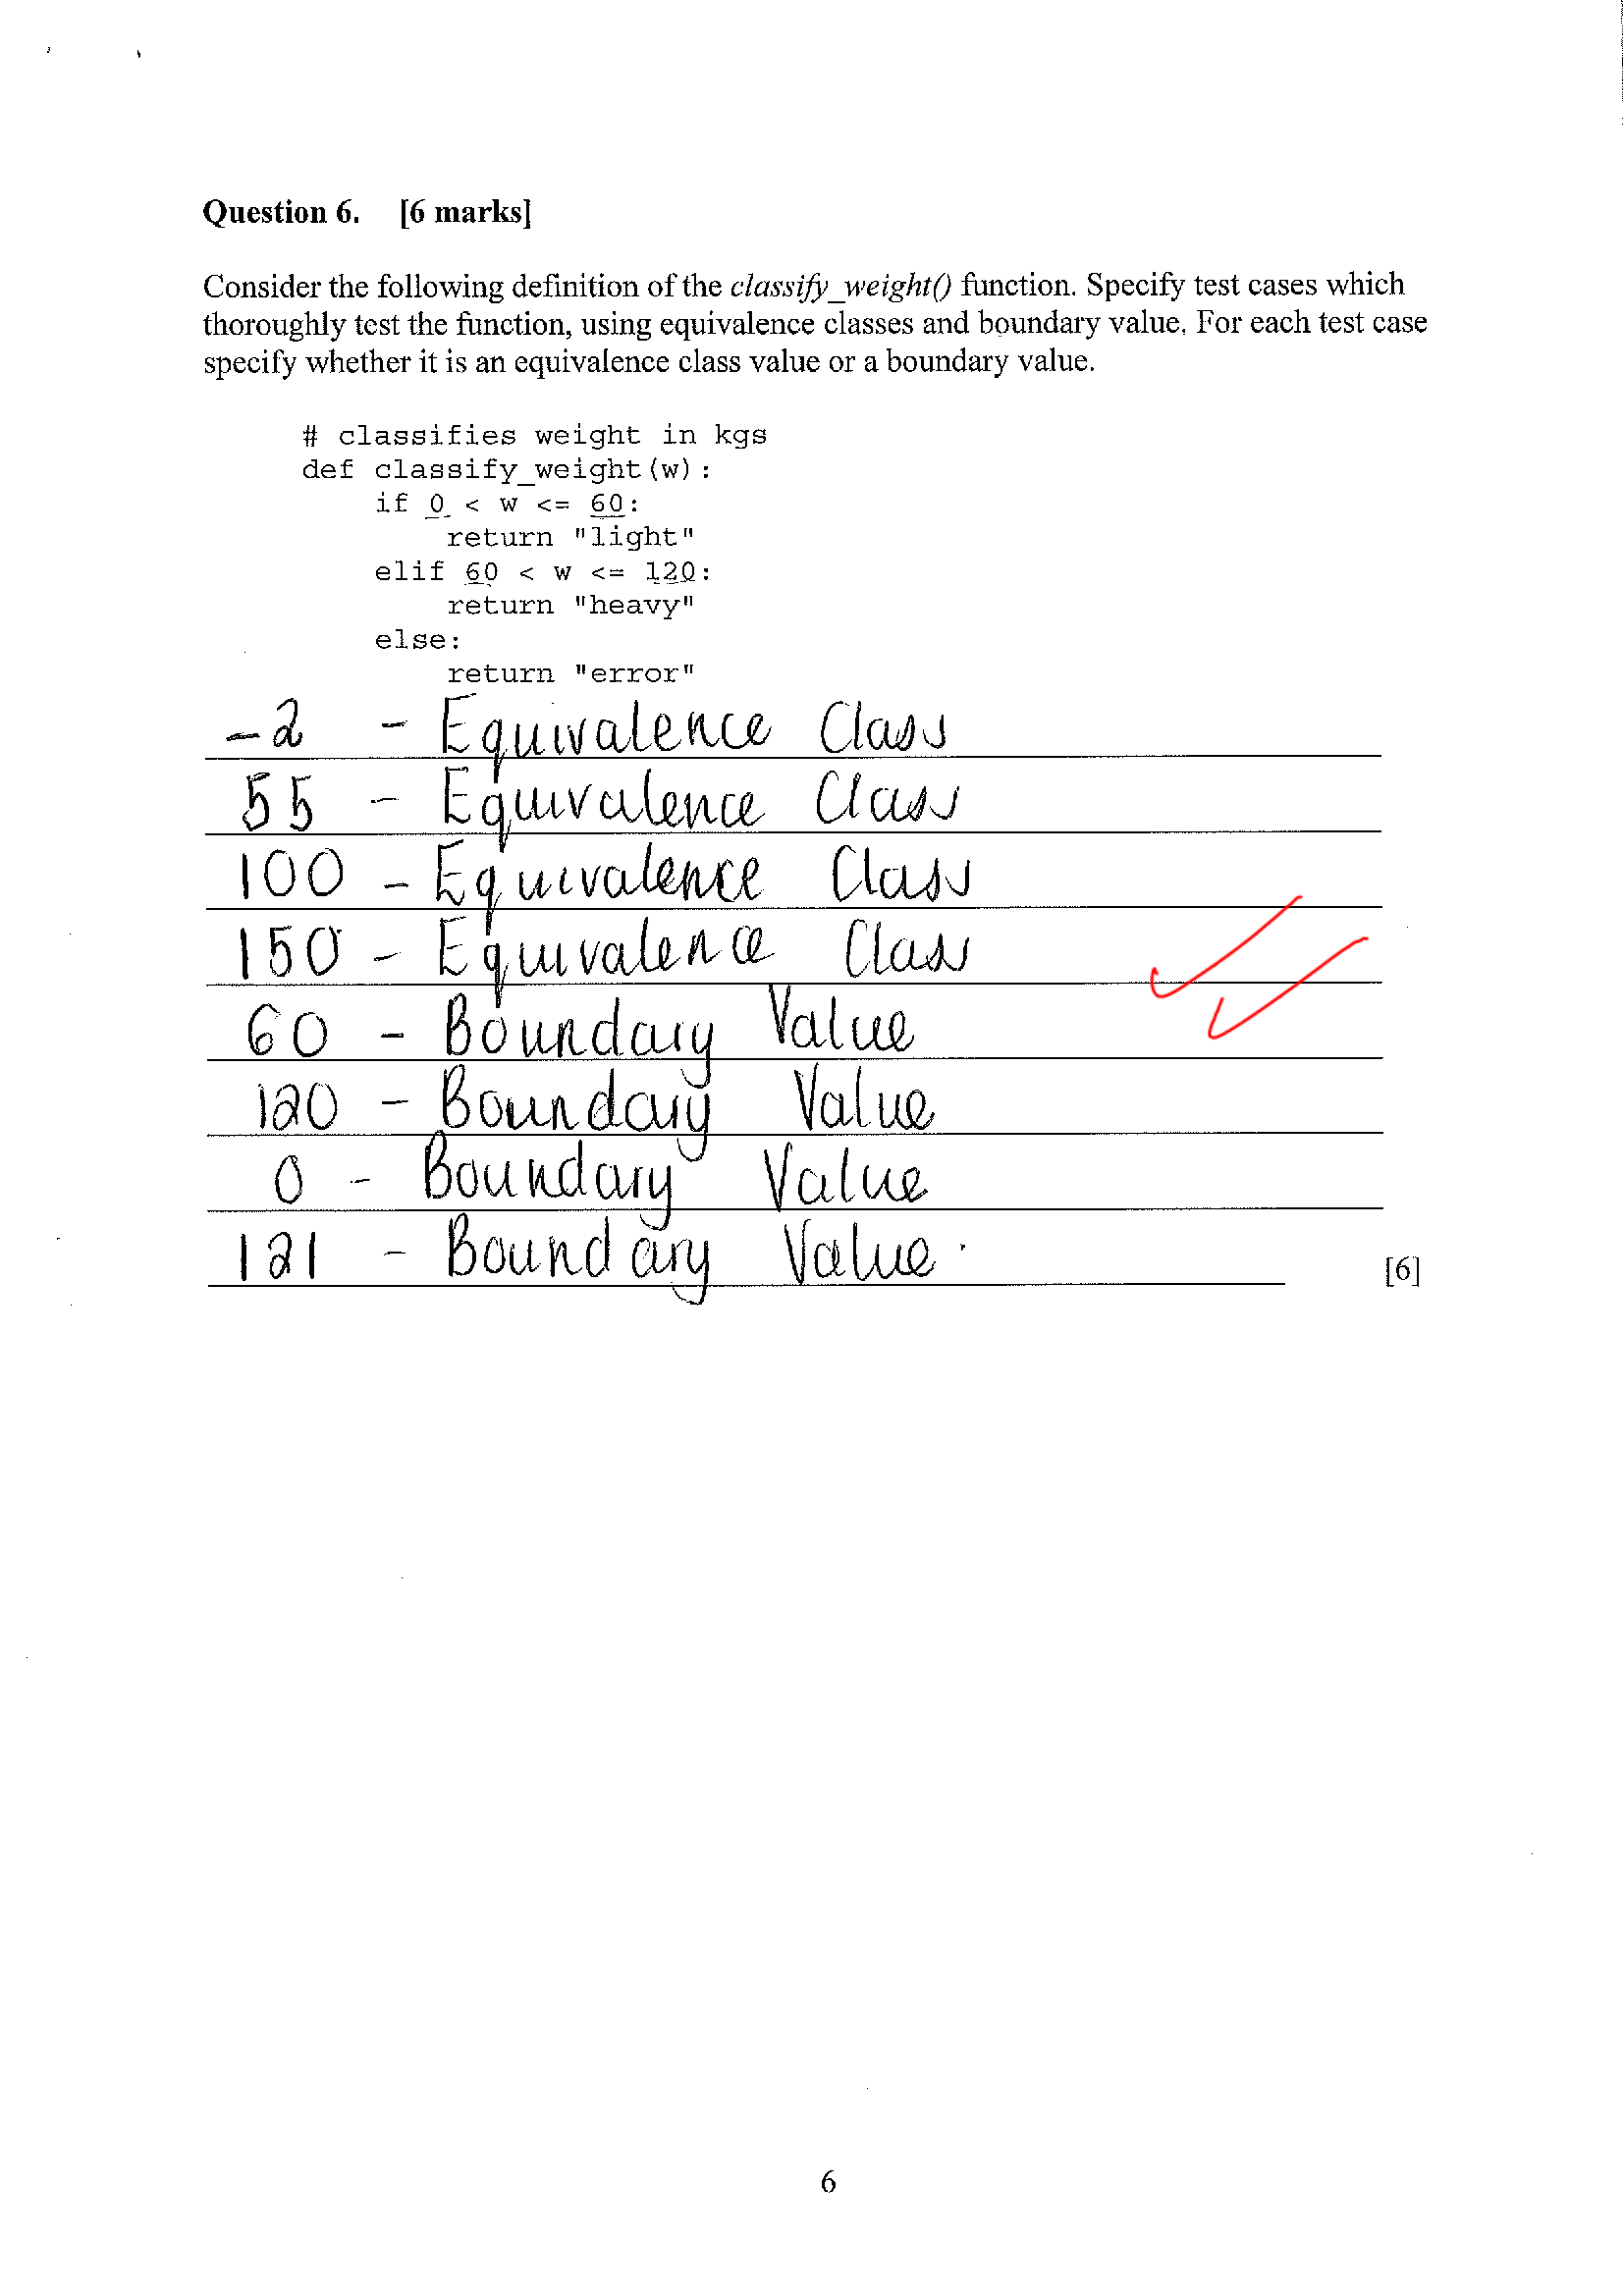 Question 6. [6 marks]
Consider the following definition of the classify_weight() function. Specify test cases which
thoroughly test the function, using equivalence classes and boundary value. For each test case
specify whether it is an equivalence class value or a boundary value.
# classifies weight in kgs
def classify_weight(w):
if 0 < w <= 60:
return "light"
elif 60 < w <= 120:
return "heavy"
else:
return "error"
-2 - Equivalence Class
55 - Equivalence Class
100 - Equivalence Class
150 - Equivalence Class
60 - Boundary Value
120 - Boundary Value
0 - Boundary Value
121 - Boundary Value.
[6]
6